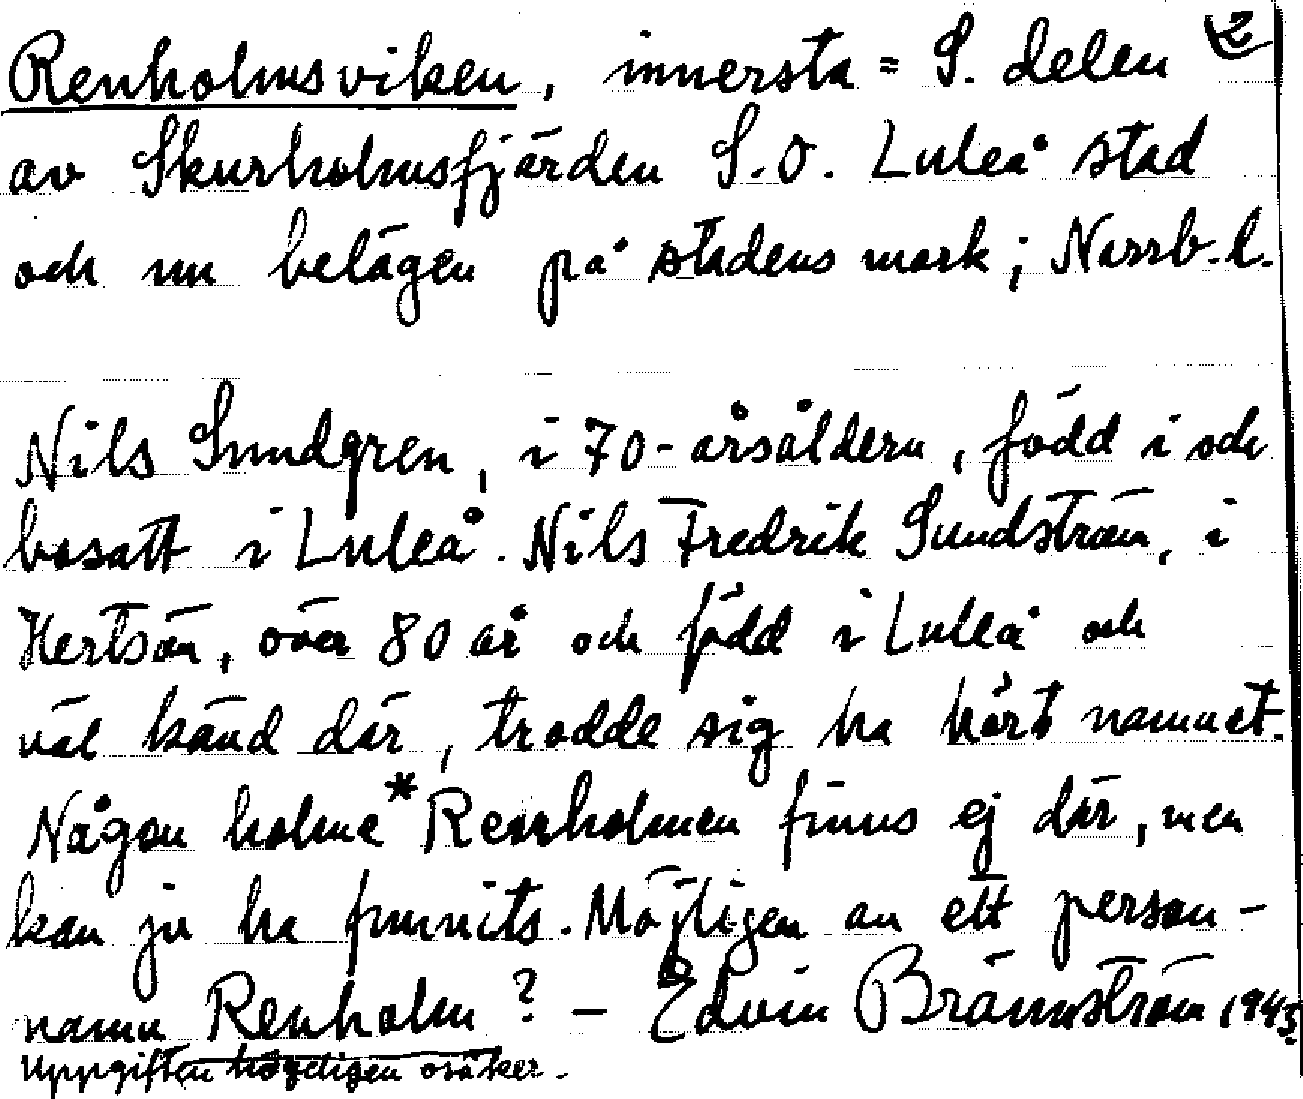 Renholmsviken, innersta = S. delen 2
av Skurholmsfjärden S.O. Luleå stad
och nu belägen på stadens mark; Norrb. l.
Nils Sundgren, i 70-årsåldern, född i och
bosatt i Luleå. Nils Fredrik Sundström, i
Hertsön, över 80 år och född i Luleå och
väl känd där, trodde sig ha hört namnet.
Någon holme *Renholmen finns ej där, men
kan ju ha funnits. Möjligen av ett person-
namn Renholm? – Edvin Brännström 1945.
Uppgiften högeligen osäker.